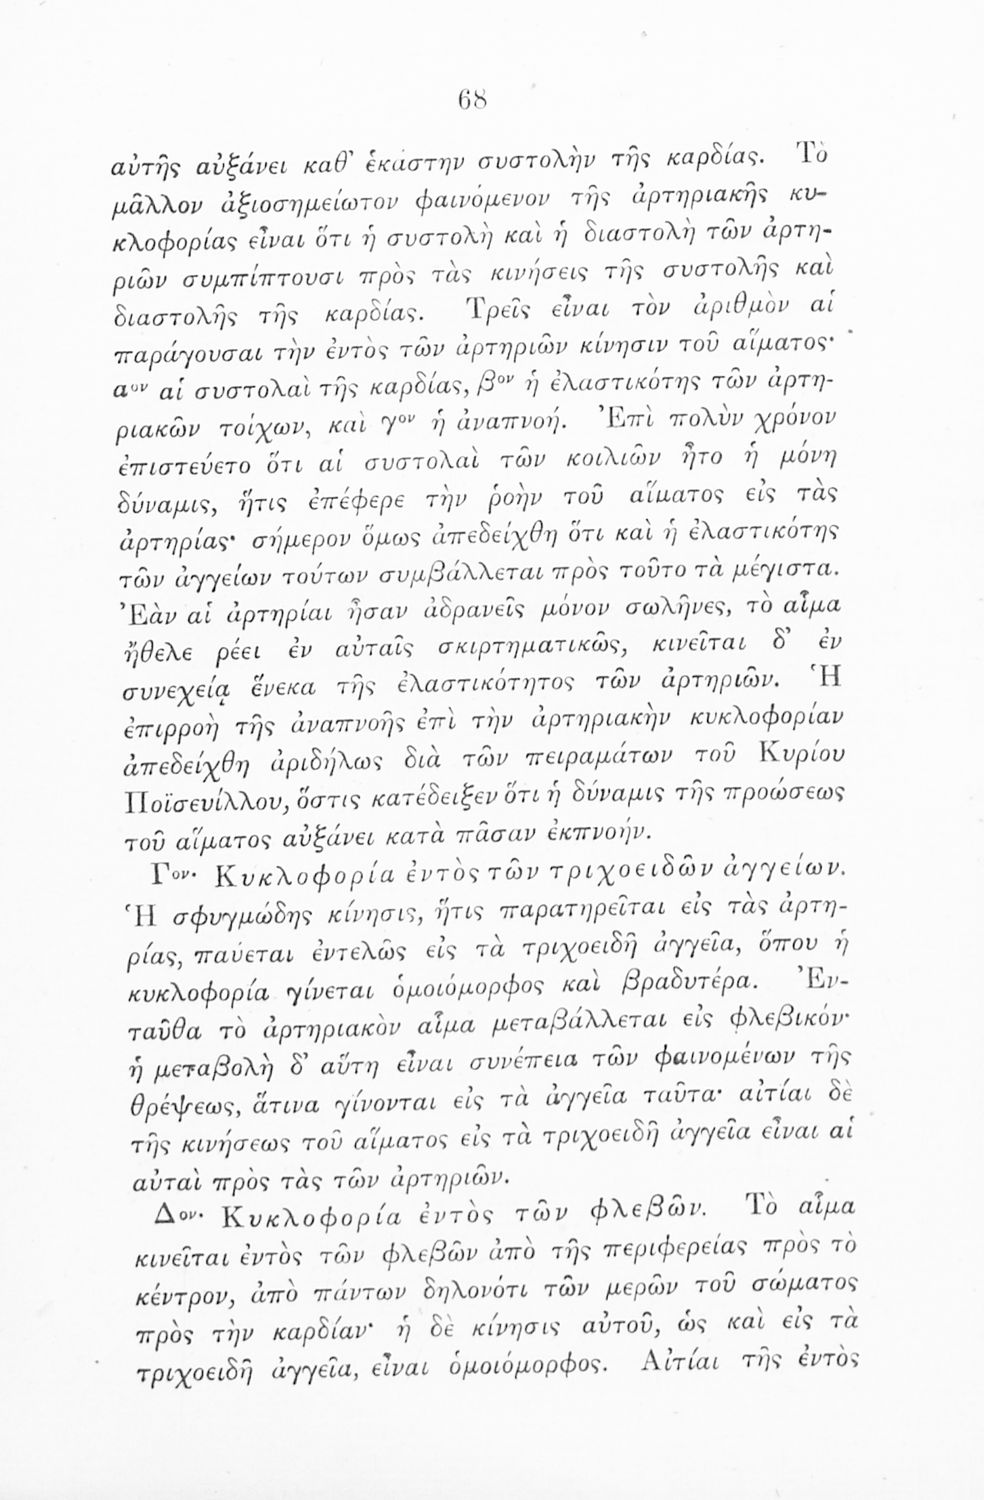 68
αὐτῆς αὐξάνει καθ' ἑκάστην συστολὴν τῆς καρδίας. Τὸ
μᾶλλον ἀξιοσημείωτον φαινόμενον τῆς ἀρτηριακῆς κυ-
κλοφορίας εἶναι ὅτι ἡ συστολὴ καὶ ἡ διαστολὴ τῶν ἀρτη-
ριῶν συμπίπτουσι πρὸς τὰς κινήσεις τῆς συστολῆς καὶ
διαστολῆς τῆς καρδίας. Τρεῖς εἶναι τὸν ἀριθμὸν αἱ
παράγουσαι τὴν ἐντὸς τῶν ἀρτηριῶν κίνησιν τοῦ αἵματος·
αον αἱ συστολαὶ τῆς καρδίας, βον ἡ ἐλαστικότης τῶν ἀρτη-
ριακῶν τοίχων, καὶ γον ἡ ἀναπνοή. Ἐπὶ πολὺν χρόνον
ἐπιστεύετο ὅτι αἱ συστολαὶ τῶν κοιλιῶν ἦτο ἡ μόνη
δύναμις, ἥτις ἐπέφερε τὴν ῥοὴν τοῦ αἵματος εἰς τὰς
ἀρτηρίας· σήμερον ὅμως ἀπεδείχθη ὅτι καὶ ἡ ἐλαστικότης
τῶν ἀγγείων τούτων συμβάλλεται πρὸς τοῦτο τὰ μέγιστα.
Ἐὰν αἱ ἀρτηρίαι ἦσαν ἀδρανεῖς μόνον σωλῆνες, τὸ αἷμα
ἤθελε ρέει ἐν αὐταῖς σκιρτηματικῶς, κινεῖται δ' ἐν
συνεχείᾳ ἕνεκα τῆς ἐλαστικότητος τῶν ἀρτηριῶν. Ἡ
ἐπιρροὴ τῆς ἀναπνοῆς ἐπὶ τὴν ἀρτηριακὴν κυκλοφορίαν
ἀπεδείχθη ἀριδήλως διὰ τῶν πειραμάτων τοῦ Κυρίου
Ποϊσευίλλου, ὅστις κατέδειξεν ὅτι ἡ δύναμις τῆς προώσεως
τοῦ αἵματος αὐξάνει κατὰ πᾶσαν ἐκπνοήν.
Γον. Κυκλοφορία ἐντὸς τῶν τριχοειδῶν ἀγγείων.
Ἡ σφυγμώδης κίνησις, ἥτις παρατηρεῖται εἰς τὰς ἀρτη-
ρίας, παύεται ἐντελῶς εἰς τὰ τριχοειδῆ ἀγγεῖα, ὅπου ἡ
κυκλοφορία γίνεται ὁμοιόμορφος καὶ βραδυτέρα. Ἐν-
ταῦθα τὸ ἀρτηριακὸν αἷμα μεταβάλλεται εἰς φλεβικόν·
ἡ μεταβολὴ δ' αὕτη εἶναι συνέπεια τῶν φαινομένων τῆς
θρέψεως, ἅτινα γίνονται εἰς τὰ ἀγγεῖα ταῦτα· αἰτίαι δὲ
τῆς κινήσεως τοῦ αἵματος εἰς τὰ τριχοειδῆ ἀγγεῖα εἶναι αἱ
αὐταὶ πρὸς τὰς τῶν ἀρτηριῶν.
Δον. Κυκλοφορία ἐντὸς τῶν φλεβῶν. Τὸ αἷμα
κινεῖται ἐντὸς τῶν φλεβῶν ἀπὸ τῆς περιφερείας πρὸς τὸ
κέντρον, ἀπὸ πάντων δηλονότι τῶν μερῶν τοῦ σώματος
πρὸς τὴν καρδίαν· ἡ δὲ κίνησις αὐτοῦ, ὡς καὶ εἰς τὰ
τριχοειδῆ ἀγγεῖα, εἶναι ὁμοιόμορφος. Αἰτίαι τῆς ἐντὸς